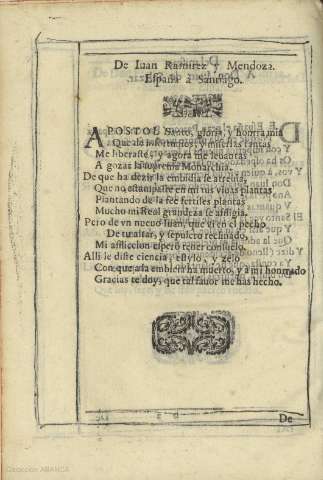 De Iuan Ramirez y Mendoza.
España à Santiago.
APOSTOL Santo, gloria, y honra mia
Que de infortunios, y muertas tantas
Me liberaste, y agora me leuantas
A gozar la suprema Monarchia.
De que ha dezir la embidia se atreuia
Que no estampaste en mi tus viuas plantas
Plantando de la fee fertiles plantas
Mucho mi Real grandeza se afligia.
Pero de vn nueuo Iuan, que en el pecho
De tu altar, y sepulcro reclinado,
Mi afliccion espero tener consuelo,
Alli le diste ciencia, estylo, y zelo
Con que a la embidia ha muerto, y a mi honrrado
Gracias te doy, que tal fauor me has hecho.
De
Colección ABANCA